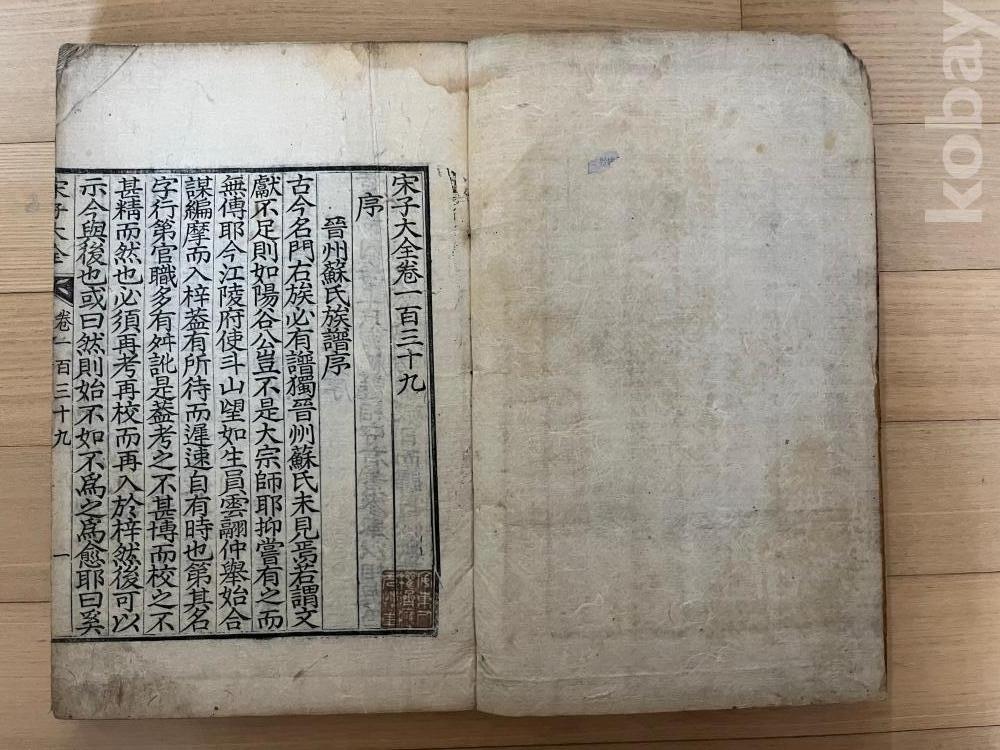 宋子大全卷一百三十九
序
晉州蘇氏族譜序
古今名門右族必有譜獨晉州蘇氏未見焉若謂文
獻不足則如陽谷公豈不是大宗師耶抑嘗有之而
無傳耶今江陵府使斗山望如生員雲翮仲舉始合
謀編摩而入梓葢有所待而遲速自有時也第其名
字行第官職多有舛訛是葢考之不甚博而校之不
甚精而然也必須再考再校而再入於梓然後可以
示今與後也或曰然則始不如不爲之爲愈耶曰奚
宋子大全
卷一百三十九
一
kobay